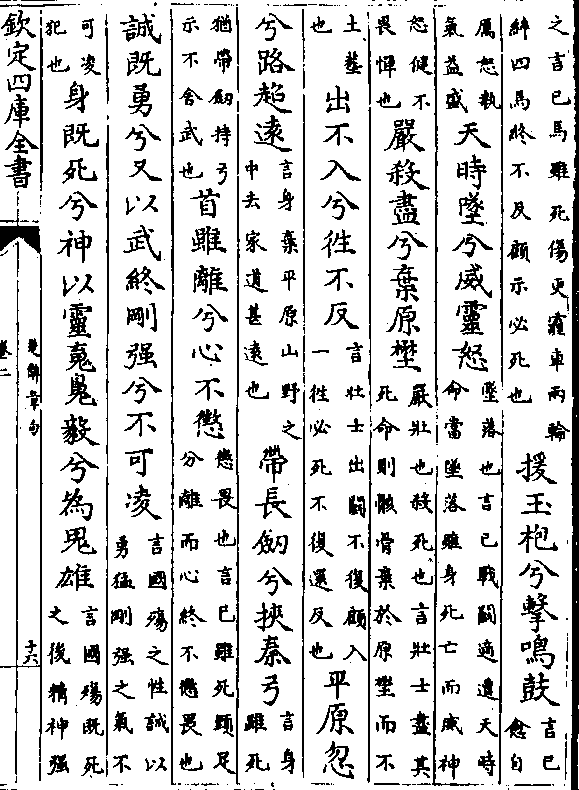 之言已馬雖死傷更霾車兩輪
絆四馬終不反顧示必死也
援玉枹兮擊鳴鼓
言已
愈自
厲怒埶
氣益盛
天時墜兮威靈怒
墜落也言已戰鬭適遭天時
命當墜落雖身死亡而威神
怒健不
畏憚也
嚴殺盡兮棄原壄
嚴壯也殺死也言壯士盡其
死命則骸骨棄於原壄而不
土葬
也
出不入兮徃不反
言壯士出鬭不復顧入
一徃必死不復還反也
平原忽
兮路超逺
言身棄平原山野之
中去家道甚逺也
帶長劒兮挾秦弓
言身
雖死
猶帶劒持弓
示不舍武也
首雖離兮心不懲
懲畏也言已雖死頭足
分離而心終不懲畏也
誠既勇兮又以武終剛强兮不可凌
言國殤之性誠以
勇猛剛强之氣不
可凌
犯也
身既死兮神以靈䰟魄毅兮為鬼雄
言國殤既死
之後精神强
欽定四庫全書
楚辭章句
卷二
十六